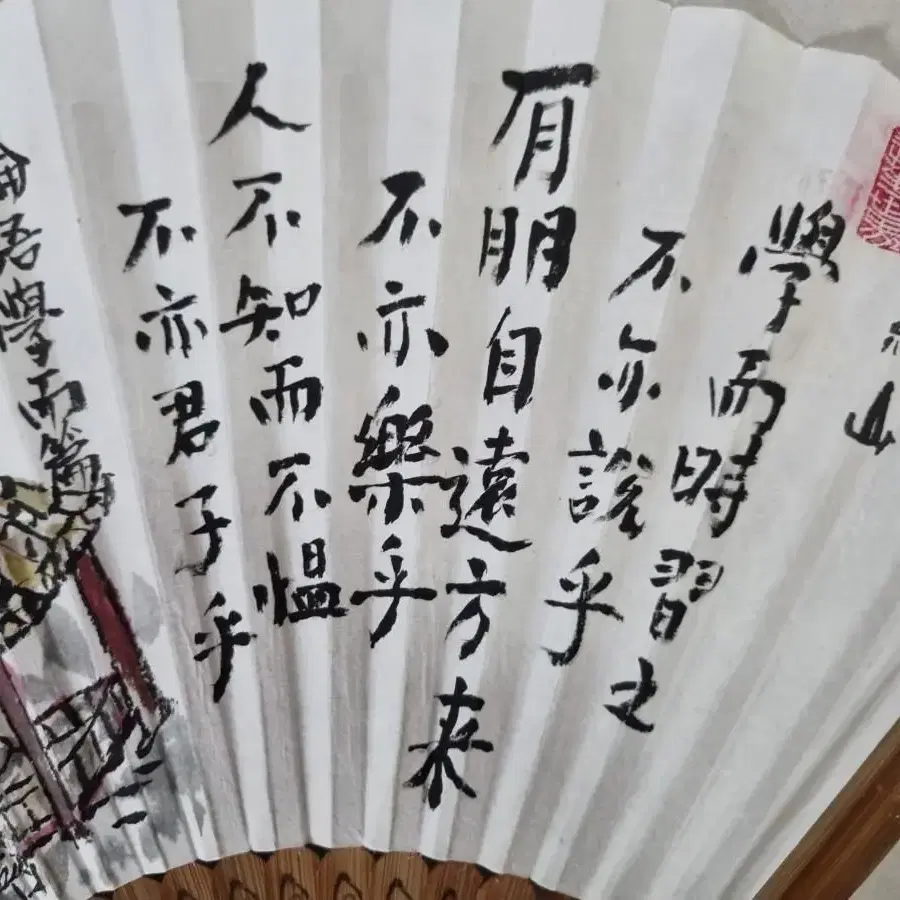 學而時習之
不亦說乎
有朋自遠方来
不亦樂乎
人不知而不愠
不亦君子乎
論語學而篇
山